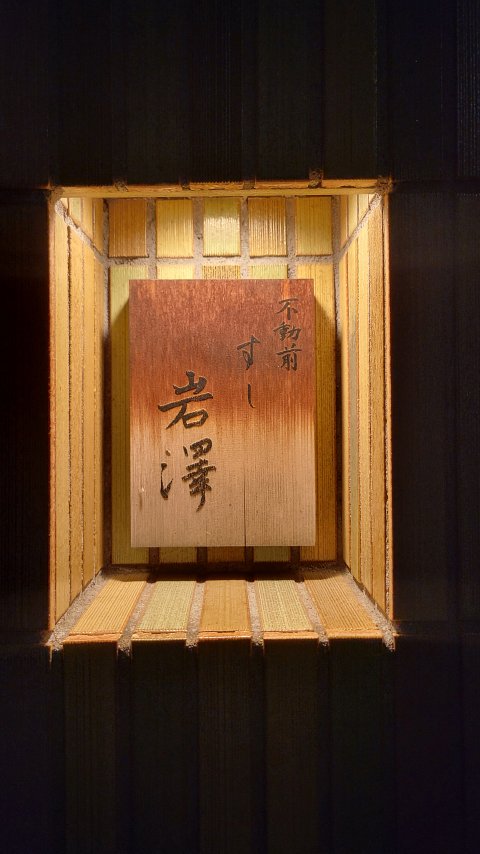 不動前
すし
岩澤